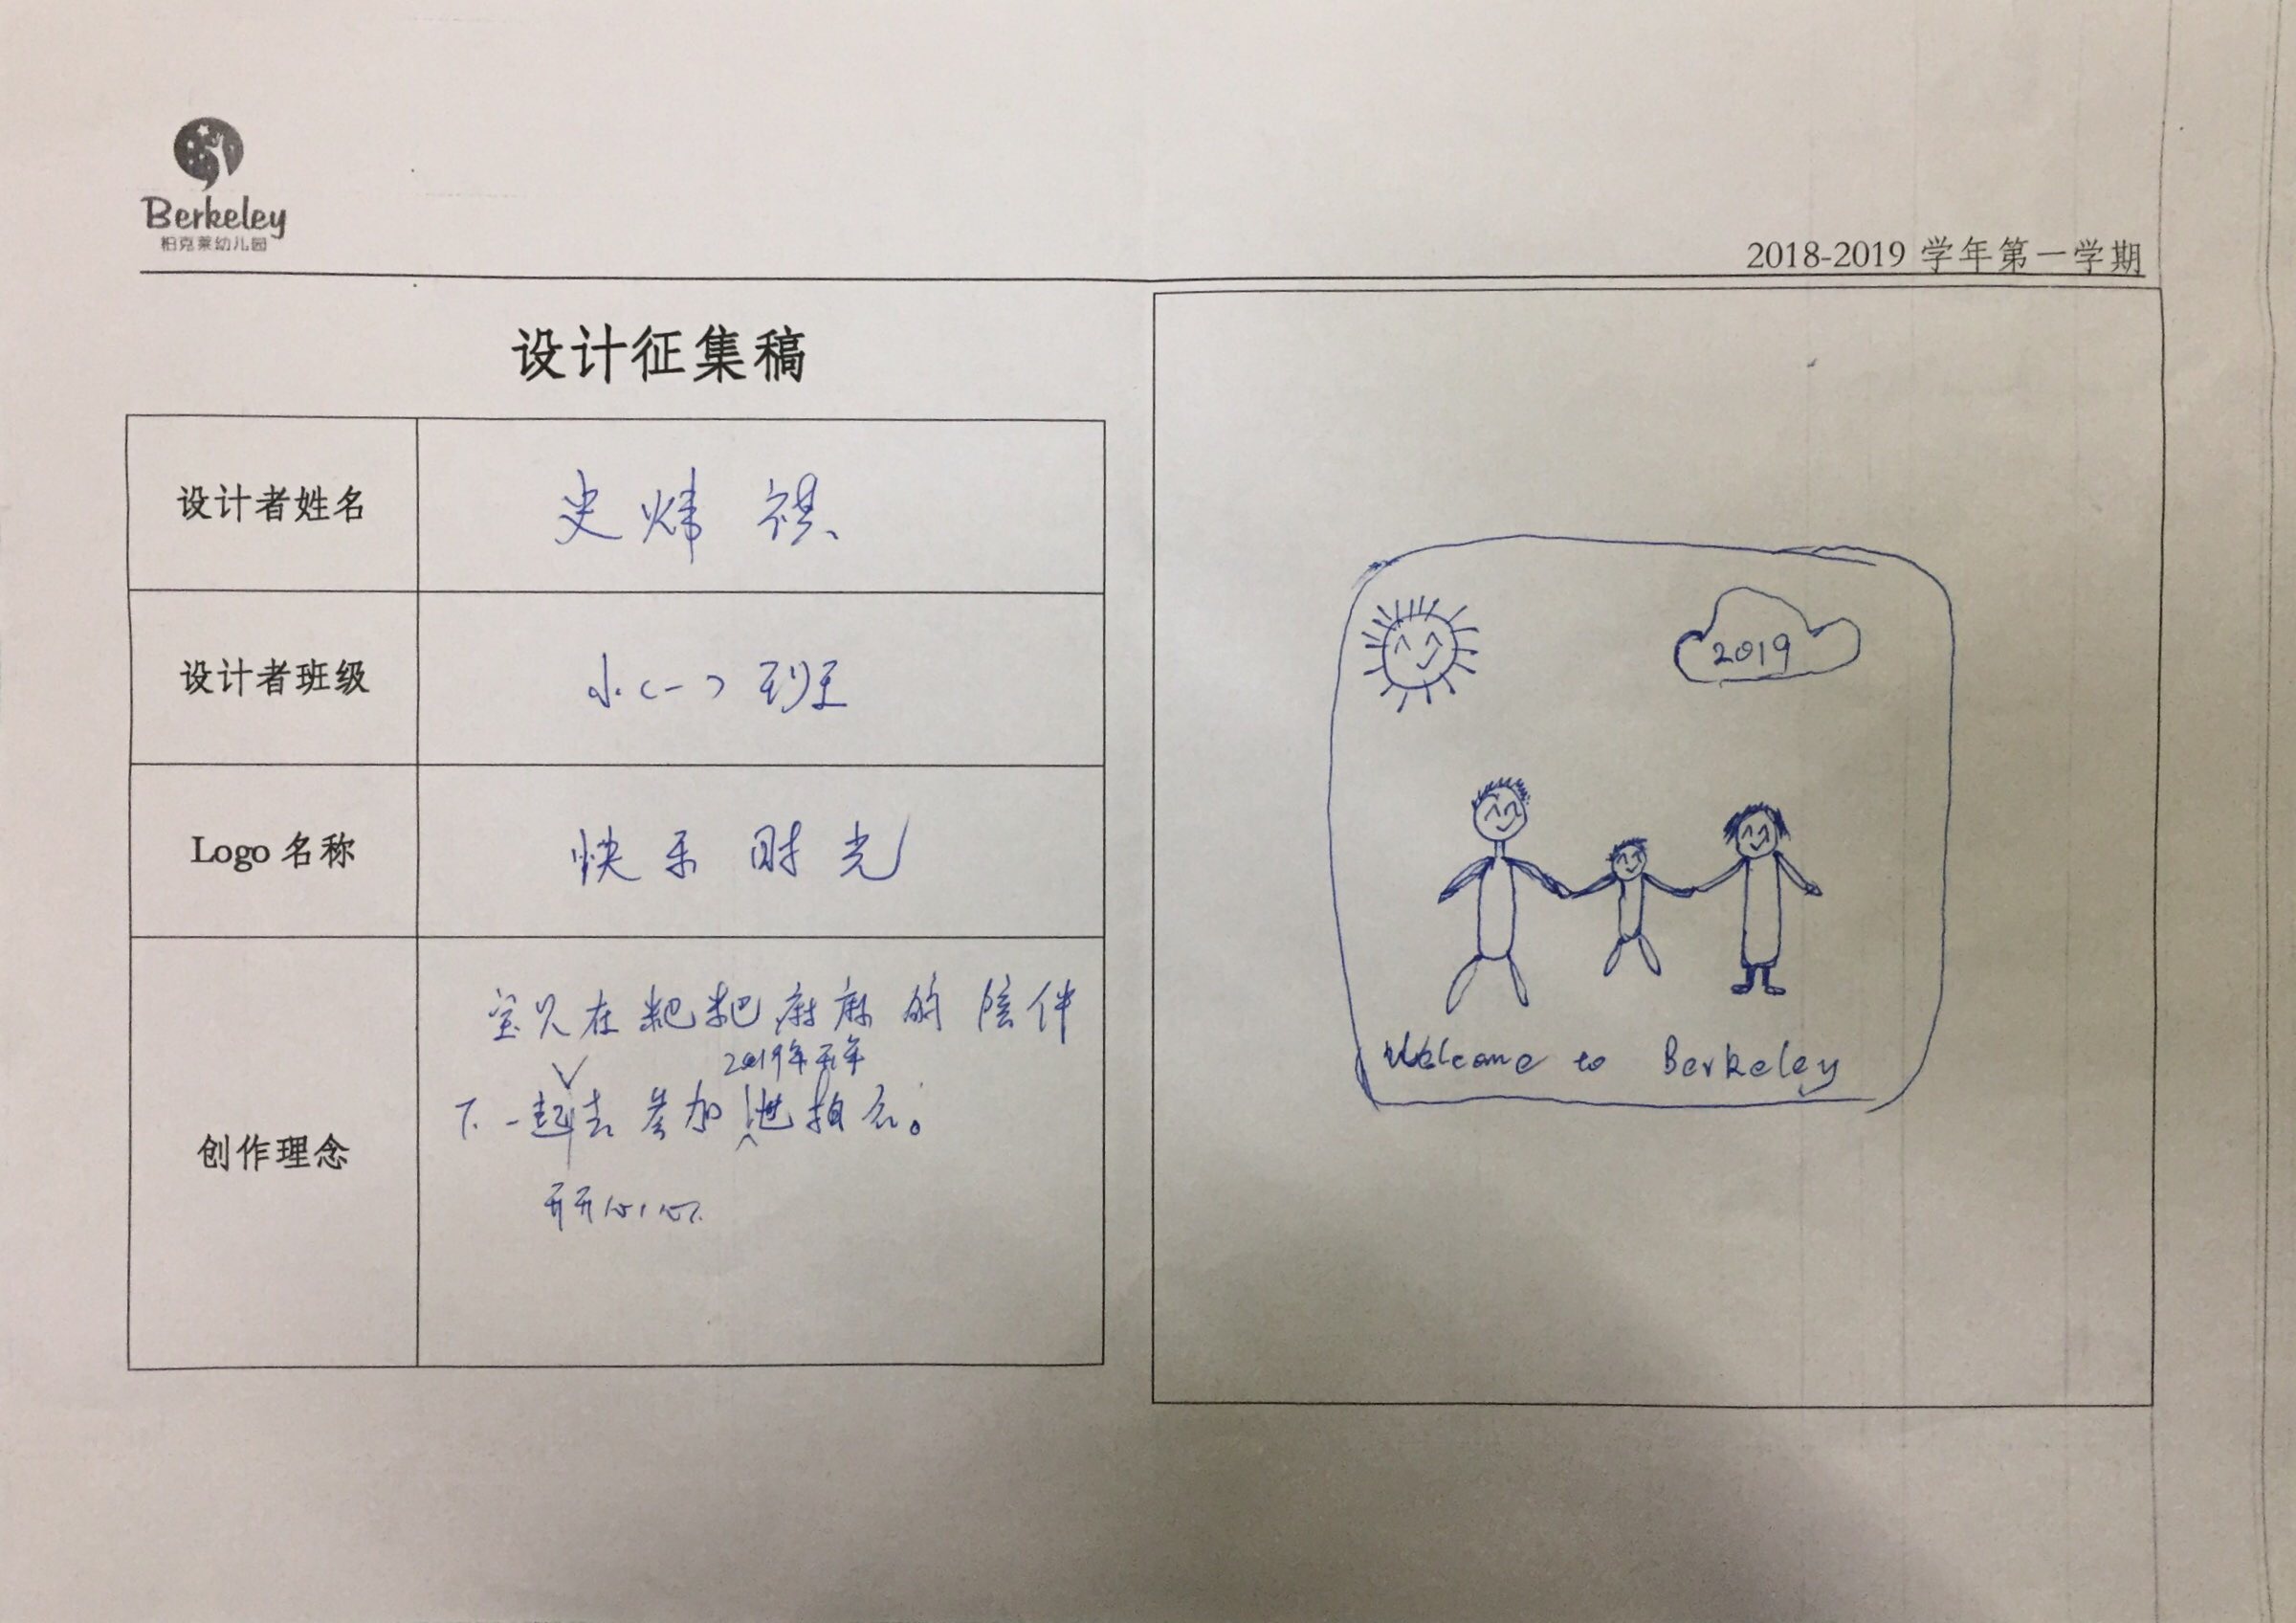 Berkeley
柏克莱幼儿园
2018-2019 学年第一学期
设计征集稿
设计者姓名
史炜祺
设计者班级
小(一)班
Logo 名称
快乐时光
创作理念
宝贝在粑粑麻麻的陪伴
2019年
下一起去参加
开开心心
2019
Welcome to Berkeley